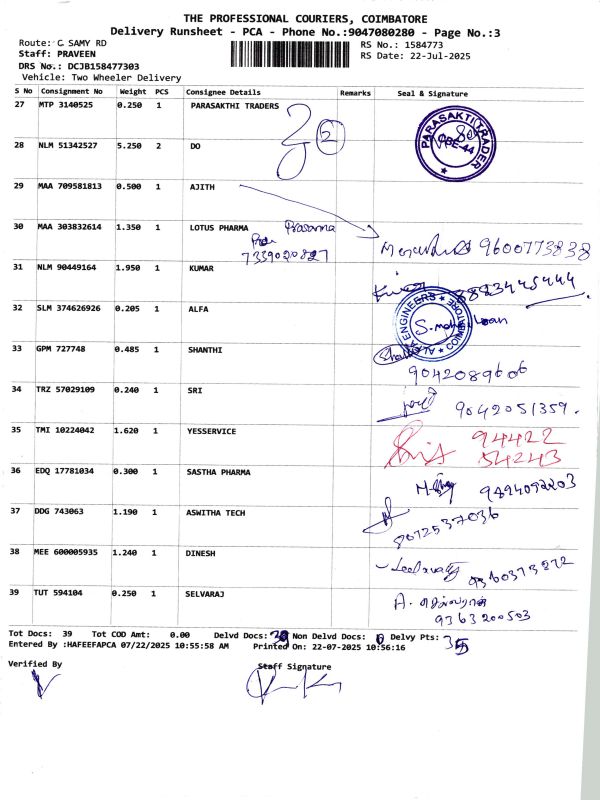 THE PROFESSIONAL COURIERS, COIMBATORE
Delivery Runsheet - PCA - Phone No.:9047080280 - Page No.:3
Route: C SAMY RD
Staff: PRAVEEN
DRS No.: DCJB158477303
Vehicle: Two Wheeler Delivery
RS No.: 1584773
RS Date: 22-Jul-2025
S No Consignment No Weight PCS Consignee Details Remarks Seal & Signature
27 MTP 3140525 0.250 1 PARASAKTHI TRADERS
2
PARASAKTI TRADER
CBE-44
28 NLM 51342527 5.250 2 DO
29 MAA 709581813 0.500 1 AJITH
30 MAA 303832614 1.350 1 LOTUS PHARMA Prasanna
7339020827
9600773838
31 NLM 90449164 1.950 1 KUMAR
32 SLM 374626926 0.205 1 ALFA
ENGINEERS
COIMBATORE
33 GPM 727748 0.485 1 SHANTHI
9042089606
34 TRZ 57029109 0.240 1 SRI
9042051359.
35 TMI 10224042 1.620 1 YESSERVICE
94422
54243
36 EDQ 17781034 0.300 1 SASTHA PHARMA
9894092203
37 DDG 743063 1.190 1 ASWITHA TECH
8072537036
38 MEE 600005935 1.240 1 DINESH
9360373272
39 TUT 594104 0.250 1 SELVARAJ
A. செல்வராஜ்
9363200503
Tot Docs: 39 Tot COD Amt: 0.00 Delvd Docs: 39 Non Delvd Docs: 0 Delvy Pts: 35
Entered By :HAFEEFAPCA 07/22/2025 10:55:58 AM Printed On: 22-07-2025 10:56:16
Verified By
Staff Signature